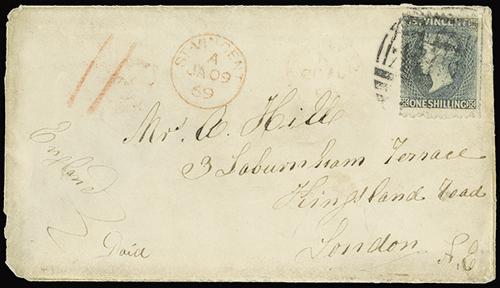 ST. VINCENT
ONE SHILLING
ST. VINCENT
A
JA 09
69
Mr. A. Hill
3 Laburnham Terrace
Kingsland Road
London
England
Paid